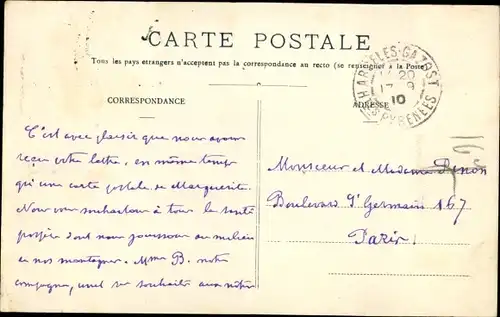 CARTE POSTALE
Tous les pays etrangers n'acceptent pas la correspondance au recto (se renseigner à la Poste)
CORRESPONDANCE
ADRESSE
ARGELÈS-GAZOST
20
17 9
10
HTES PYRÉNÉES
C'est avec plaisir que nous avons
reçu votre lettre, en même temps
qu'une carte postale de Marguerite.
Nous vous souhaitons à tous la santé
dont nous jouissons au milieu
de nos montagnes. Mme B. notre
compagne, unit ses souhaits aux nôtres
Monsieur et Madame
Boulevard St Germain 167
Paris